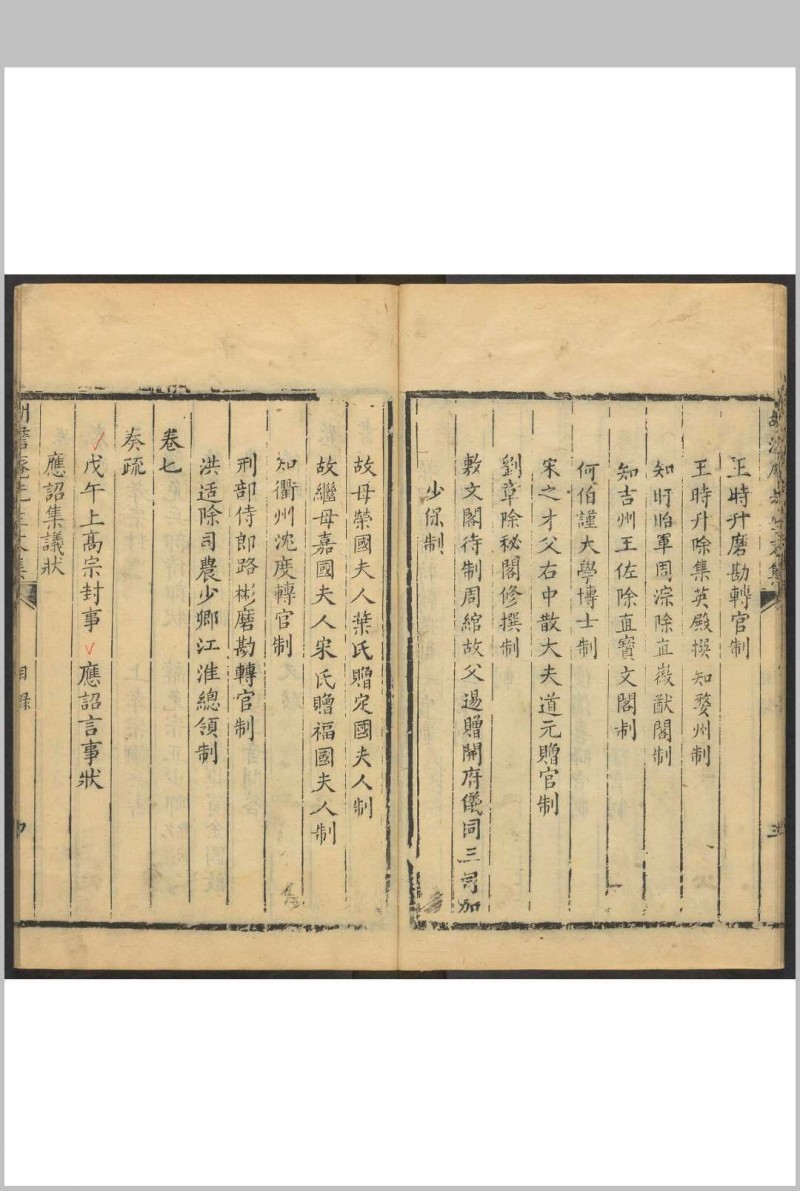 王時升磨勘轉官制
王時升除集英殿撰知婺州制
知盱眙軍周淙除直徽猷閣制
知吉州王佐除直寶文閣制
何伯謹大學博士制
宋之才父右中散大夫道元贈官制
劉章除秘閣修撰制
敷文閣待制周綰故父逷贈開府儀同三司加
少保制
故母榮國夫人葉氏贈定國夫人制
故繼母嘉國夫人宋氏贈福國夫人制
知衢州沈度轉官制
刑部侍郎路彬磨勘轉官制
洪适除司農少卿江淮總領制
卷七
奏疏
戊午上高宗封事 應詔言事狀
應詔集議狀
目錄